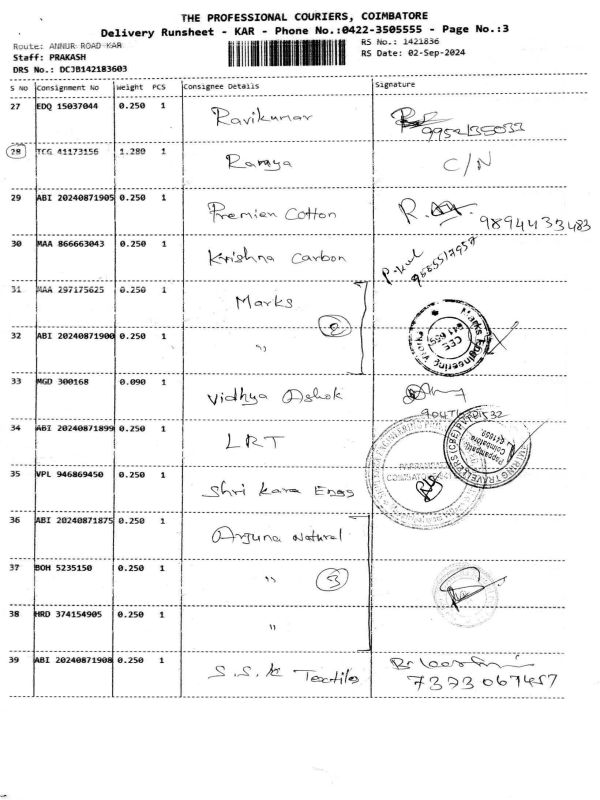 THE PROFESSIONAL COURIERS, COIMBATORE
Delivery Runsheet - KAR - Phone No.:0422-3505555 - Page No.:3
Route: ANNUR ROAD-KAR
RS No.: 1421836
Staff: PRAKASH
RS Date: 02-Sep-2024
DRS No.: DCJB142183603
S No Consignment No Weight PCS Consignee Details Signature
27 EDQ 15037044 0.250 1 Ravikumar
28 TCG 41173156 1.280 1 Ramya C/N
29 ABI 20240871905 0.250 1 Premien Cotton R. 9894433483
30 MAA 866663043 0.250 1 Krishna Carbon
31 MAA 297175625 0.250 1 Marks
2
Marks Engineering Works
CBE
641 659
32 ABI 20240871900 0.250 1 ,,
33 MGD 300168 0.090 1 Vidhya Ashok
34 ABI 20240871899 0.250 1 LRT
Coimbatore
35 VPL 946869450 0.250 1 Shri Kara Engg
36 ABI 20240871875 0.250 1 Arjuna Natural
37 BOH 5235150 0.250 1 ,, 3
38 HRD 374154905 0.250 1 ,,
39 ABI 20240871908 0.250 1 S.S.K Textiles
7373067457